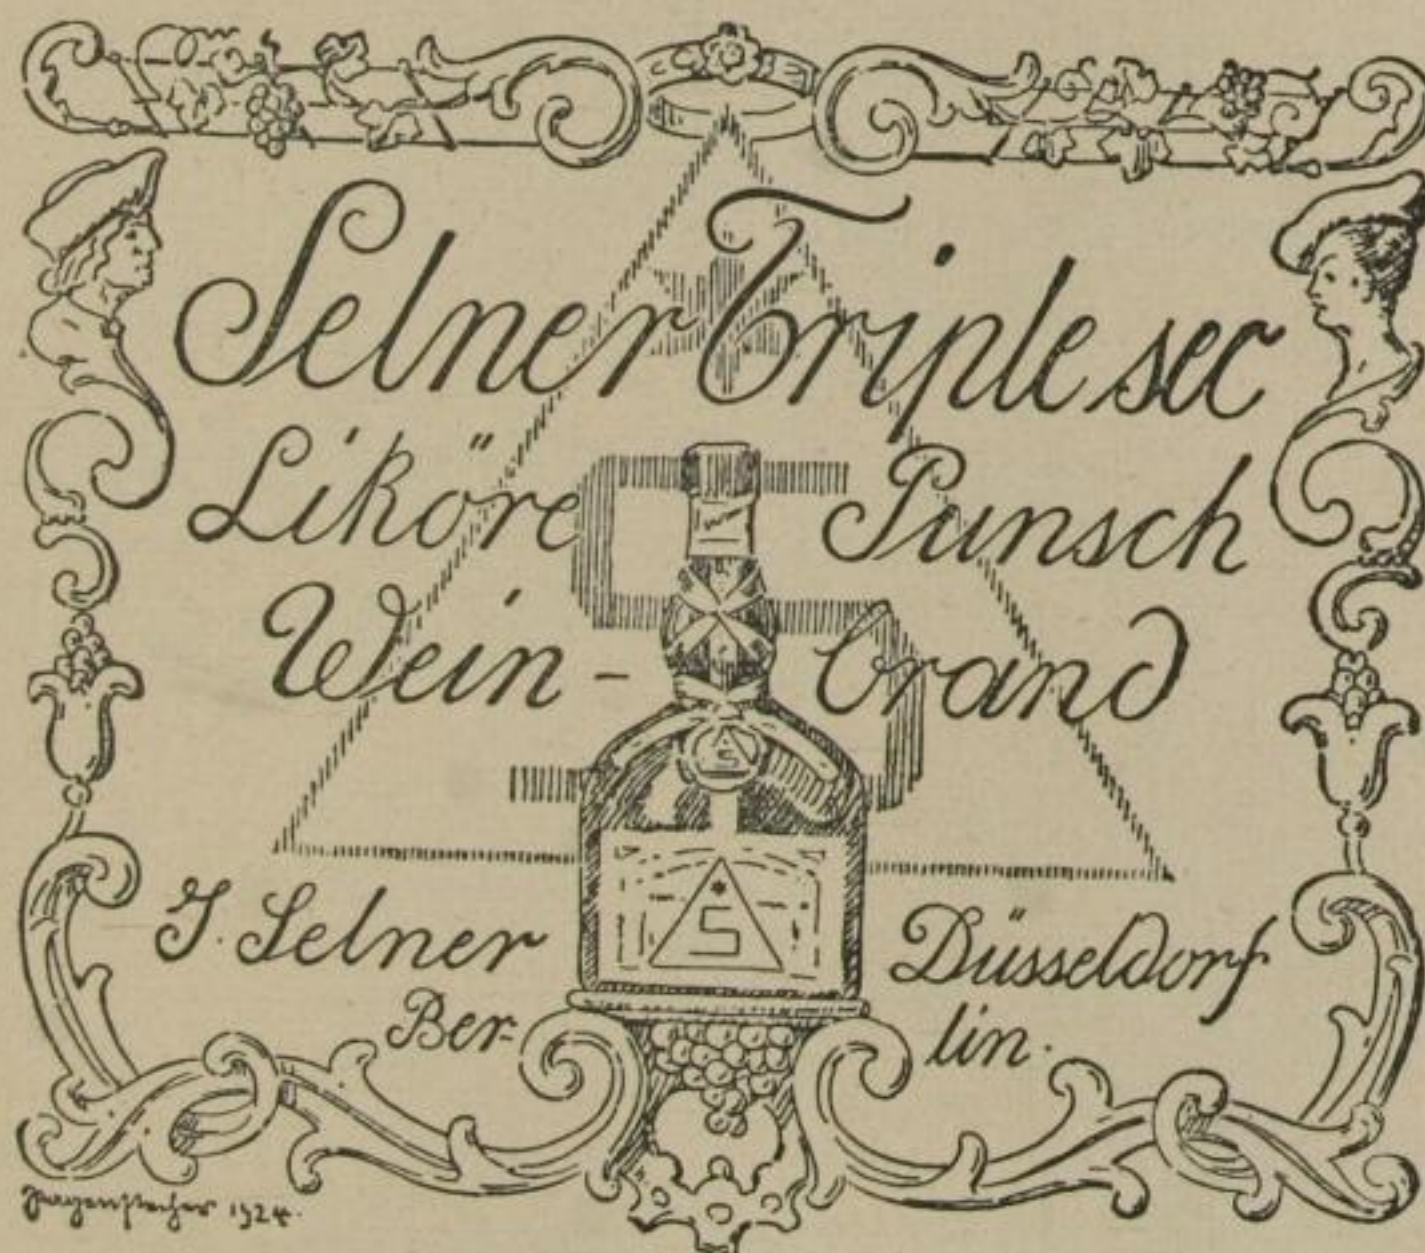 Selner Triple sec
Liköre Punsch
Wein- brand
J. Selner Düsseldorf
Ber- lin.
S
S
Pagenstecher 1924.